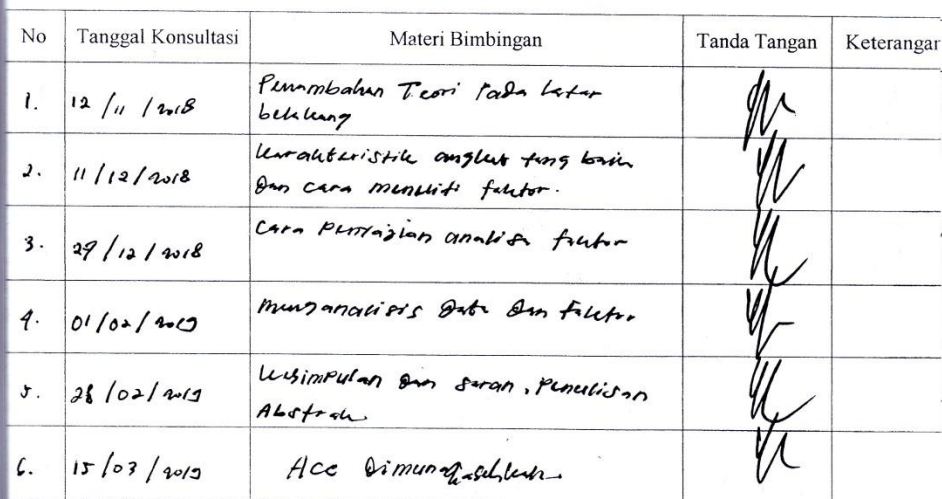 No Tanggal Konsultasi Materi Bimbingan Tanda Tangan Keterangan
1. 12/11/2018 Penambahan Teori Pada Latar
belakang
2. 11/12/2018 karakteristik angket yang baik
dan cara meneliti faktor.
3. 29/12/2018 Cara Penyajian analisa faktor
4. 01/02/2019 menganalisis Data Dan Faktor
5. 28/02/2019 kesimpulan dan saran, Penulisan
Abstrak
6. 15/03/2019 Acc Dimunaqasahkan